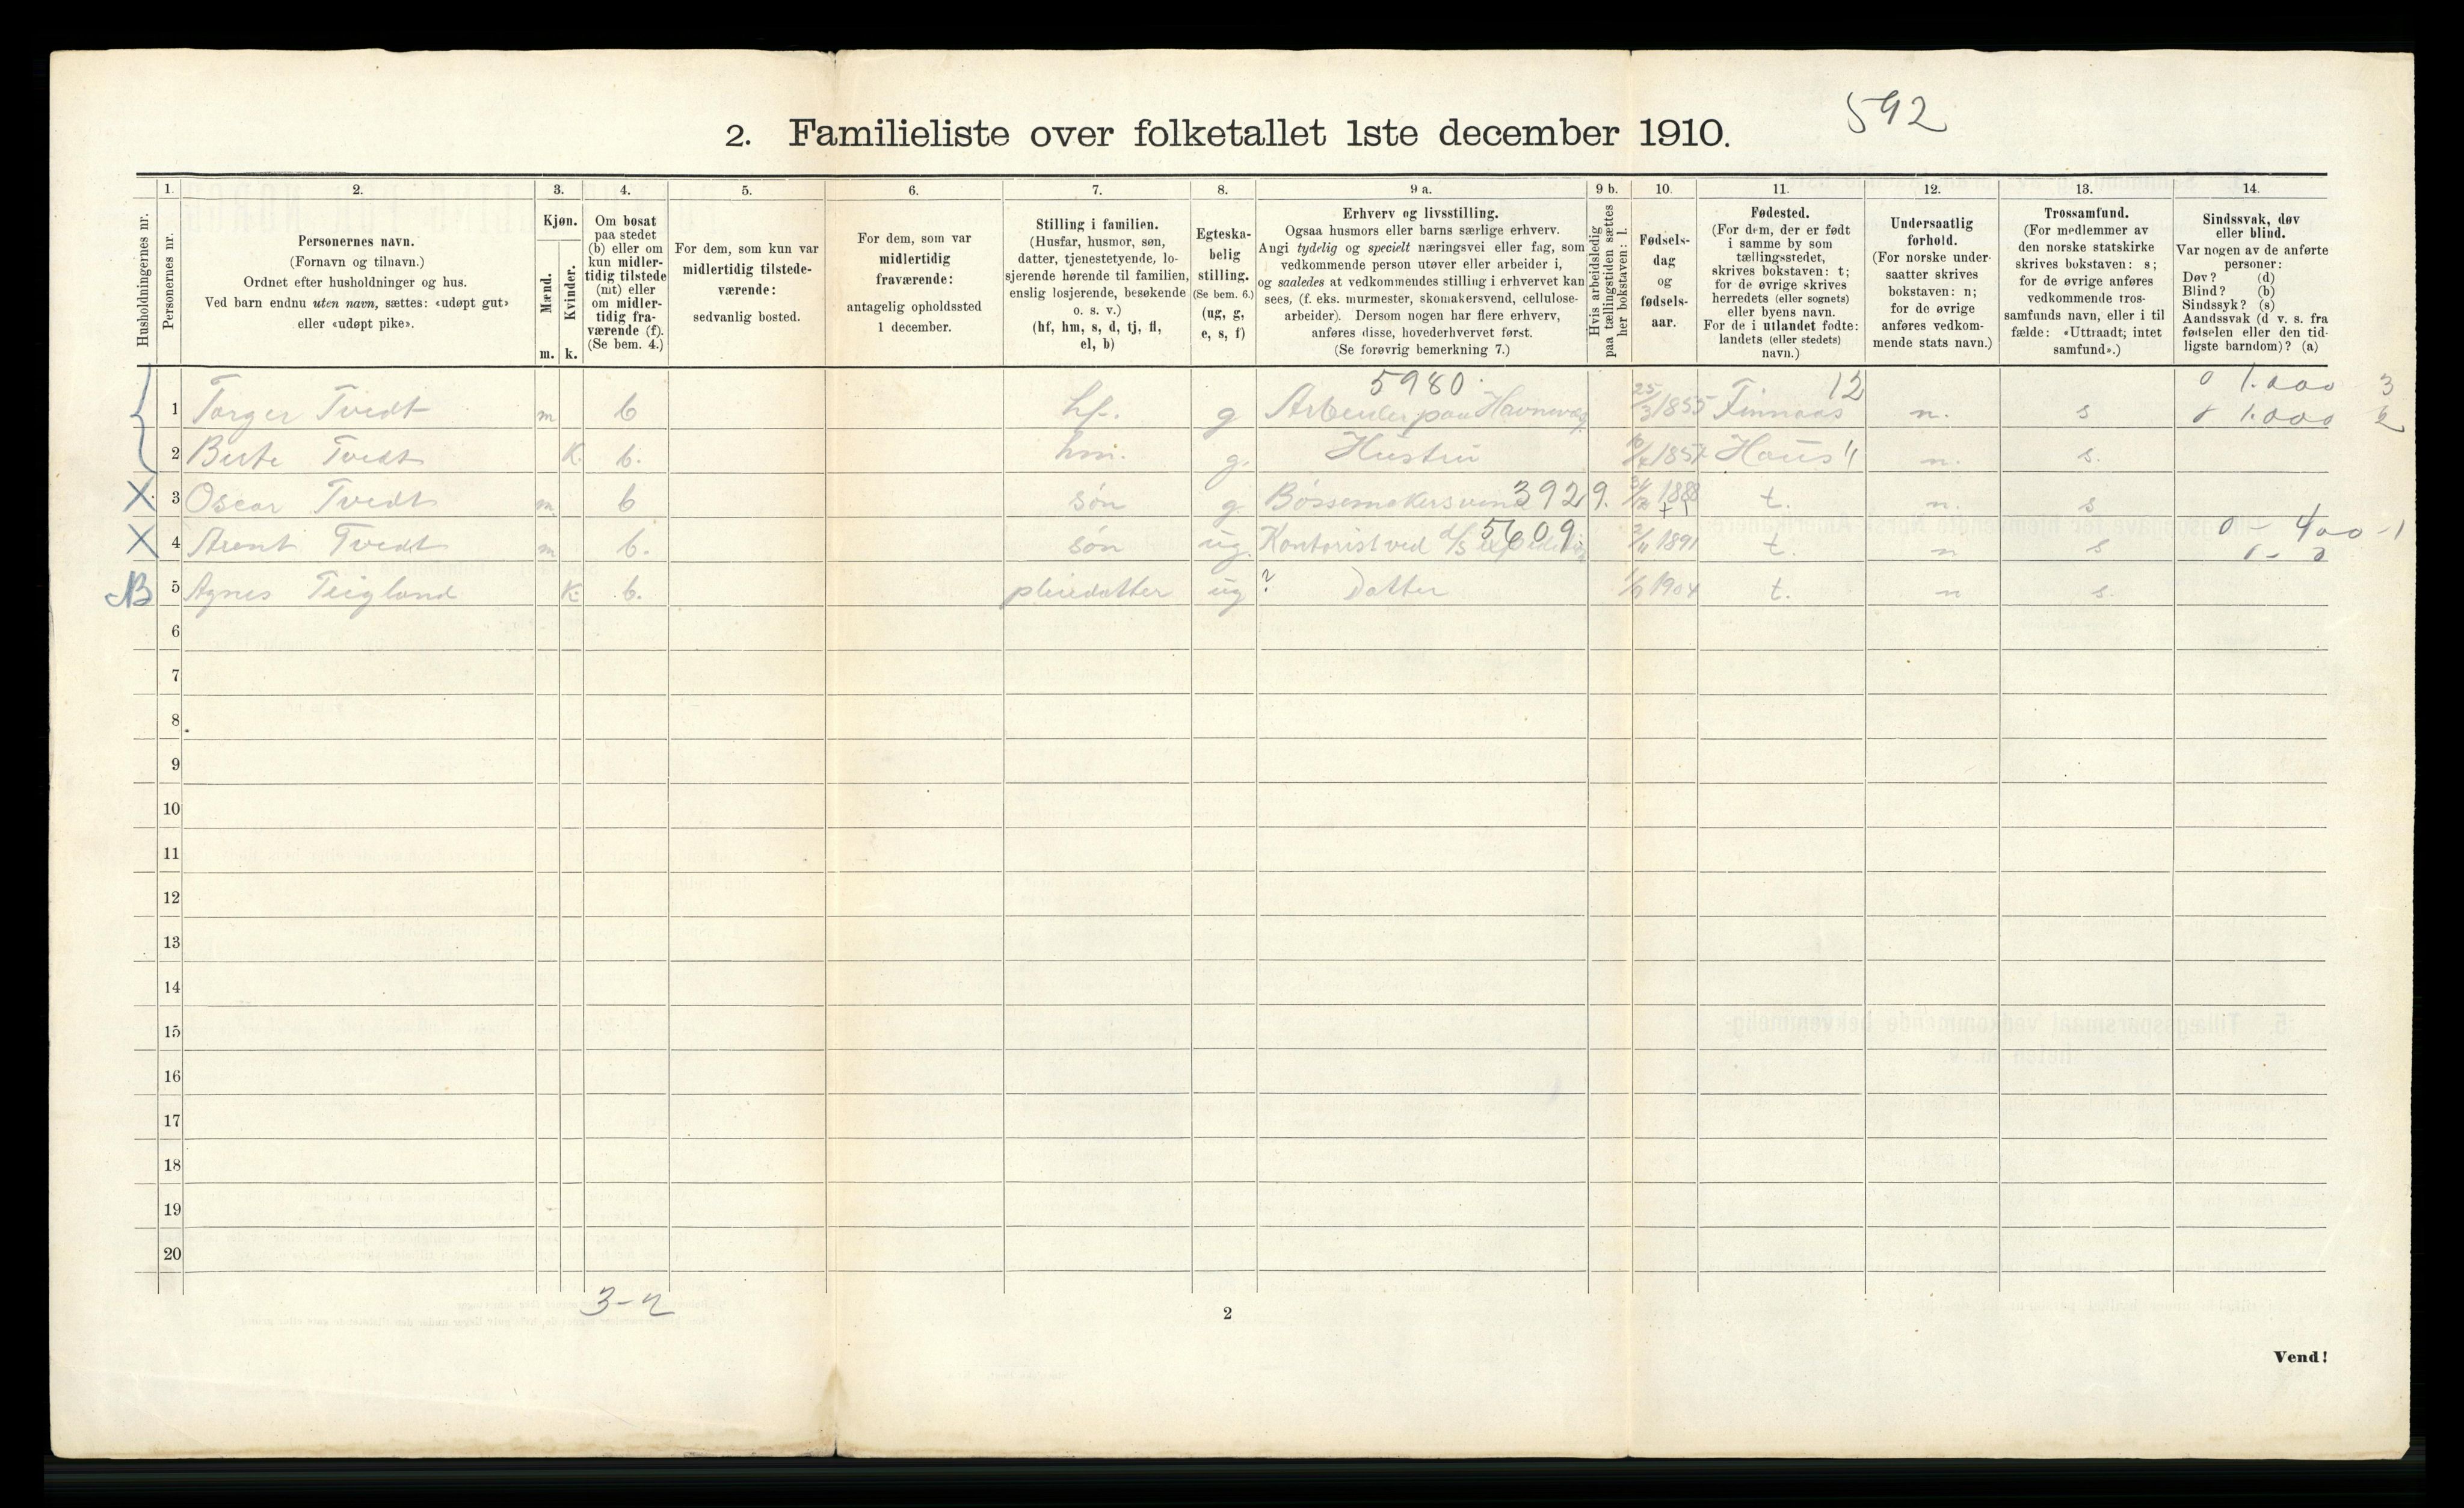 592
2. Familieliste over folketallet 1ste december 1910.
1. 2. 3. 4. 5. 6. 7. 8. 9 a. 9 b. 10. 11. 12. 13. 14.
Husholdningernes nr.
Personernes nr.
Personernes navn.
(Fornavn og tilnavn.)
Ordnet efter husholdninger og hus.
Ved barn endnu uten navn, sættes: «udøpt gut»
eller «udøpt pike».
Kjøn.
Mænd.
Kvinder.
m. k.
Om bosat
paa stedet
(b) eller om
kun midler-
tidig tilstede
(mt) eller
om midler-
tidig fra-
værende (f).
(Se bem. 4.)
For dem, som kun var
midlertidig tilstede-
værende:
sedvanlig bosted.
For dem, som var
midlertidig
fraværende:
antagelig opholdssted
1 december.
Stilling i familien.
(Husfar, husmor, søn,
datter, tjenestetyende, lo-
sjerende hørende til familien,
enslig losjerende, besøkende
o. s. v.)
(hf, hm, s, d, tj, fl,
el, b)
Egteska-
belig
stilling.
(Se bem. 6.)
(ug, g,
e, s, f)
Erhverv og livsstilling.
Ogsaa husmors eller barns særlige erhverv.
Angi tydelig og specielt næringsvei eller fag, som
vedkommende person utøver eller arbeider i,
og saaledes at vedkommendes stilling i erhvervet kan
sees, (f. eks. murmester, skomakersvend, cellulose-
arbeider). Dersom nogen har flere erhverv,
anføres disse, hovederhvervet først.
(Se forøvrig bemerkning 7.)
Hvis arbeidsledig
paa tællingstiden sættes
her bokstaven: l.
Fødsels-
dag
og
fødsels-
aar.
Fødested.
(For dem, der er født
i samme by som
tællingsstedet,
skrives bokstaven: t;
for de øvrige skrives
herredets (eller sognets)
eller byens navn.
For de i utlandet fødte:
landets (eller stedets)
navn.)
Undersaatlig
forhold.
(For norske under-
saatter skrives
bokstaven: n;
for de øvrige
anføres vedkom-
mende stats navn.)
Trossamfund.
(For medlemmer av
den norske statskirke
skrives bokstaven: s;
for de øvrige anføres
vedkommende tros-
samfunds navn, eller i til
fælde: «Uttraadt; intet
samfund».)
Sindssvak, døv
eller blind.
Var nogen av de anførte
personer:
Døv? (d)
Blind? (b)
Sindssyk? (s)
Aandssvak (d v. s. fra
fødselen eller den tid-
ligste barndom)? (a)
5980 12 0 1.000 3
1 Torger Tvedt m b hf. g Arbeider paa Havnevæs 25/3 1855 Finnaas n. s 1.000
2 Berte Tvedt K. b. hm. g. Hustru 1857 Haus 11 n. s.
X 3 Oscar Tvedt m b søn g Bøssemakersvend 3929. 1888 t. n. s
X 4 Arent Tvedt m b. søn ug. Kontorist ved d/s 5609 1891 t. n s 0 - 400 - 1
5 Agnes Teigland K. b. pleiedatter ug ? Datter 1904 t. n s.
6
7
8
9
10
11
12
13
14
15
16
17
18
19
20
3-2
2
Vend!